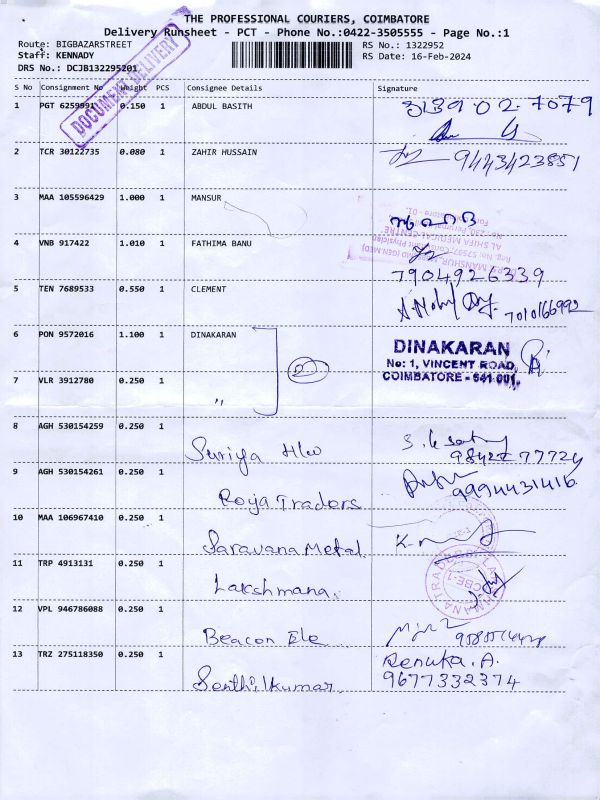 THE PROFESSIONAL COURIERS, COIMBATORE
Delivery Runsheet - PCT - Phone No.:0422-3505555 - Page No.:1
Route: BIGBAZARSTREET
RS No.: 1322952
Staff: KENNADY
RS Date: 16-Feb-2024
DRS No.: DCJB132295201
DOCUMENT DELIVERY
S No Consignment No Weight PCS Consignee Details Signature
1 PGT 6259991 0.150 1 ABDUL BASITH
2 TCR 30122735 0.080 1 ZAHIR HUSSAIN 9443423851
3 MAA 105596429 1.000 1 MANSUR
AL SHIFA MEDICAL CENTRE
4 VNB 917422 1.010 1 FATHIMA BANU
7904926339
5 TEN 7689533 0.550 1 CLEMENT 7010166992
6 PON 9572016 1.100 1 DINAKARAN
DINAKARAN
No: 1, VINCENT ROAD,
COIMBATORE - 641 001.
7 VLR 3912780 0.250 1 "
8 AGH 530154259 0.250 1 Suriya H/w
9 AGH 530154261 0.250 1 Roya Traders 9994431416
10 MAA 106967410 0.250 1 Saravana Metal
11 TRP 4913131 0.250 1 Lakshmana
12 VPL 946786088 0.250 1 Beacon Ele
13 TRZ 275118350 0.250 1 Senthilkumar Renuka.A.
9677332374